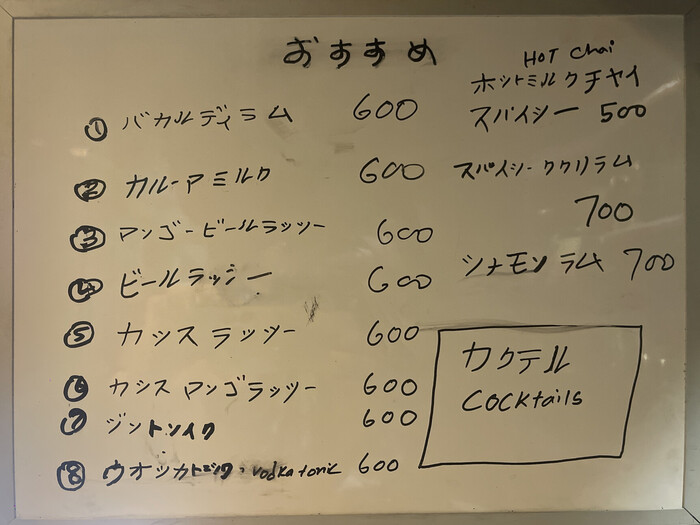 おすすめ
① バカルディラム 600
② カルーアミルク 600
③ マンゴービールラッシー 600
④ ビールラッシー 600
⑤ カシスラッシー 600
⑥ カシスマンゴラッシー 600
⑦ ジントンイク 600
⑧ ウオッカトニック・vodka tonic 600
HOT Chai
ホットミルクチャイ
スパイシー 500
スパイシーククリラム
700
シナモンラム 700
カクテル
COCKtails